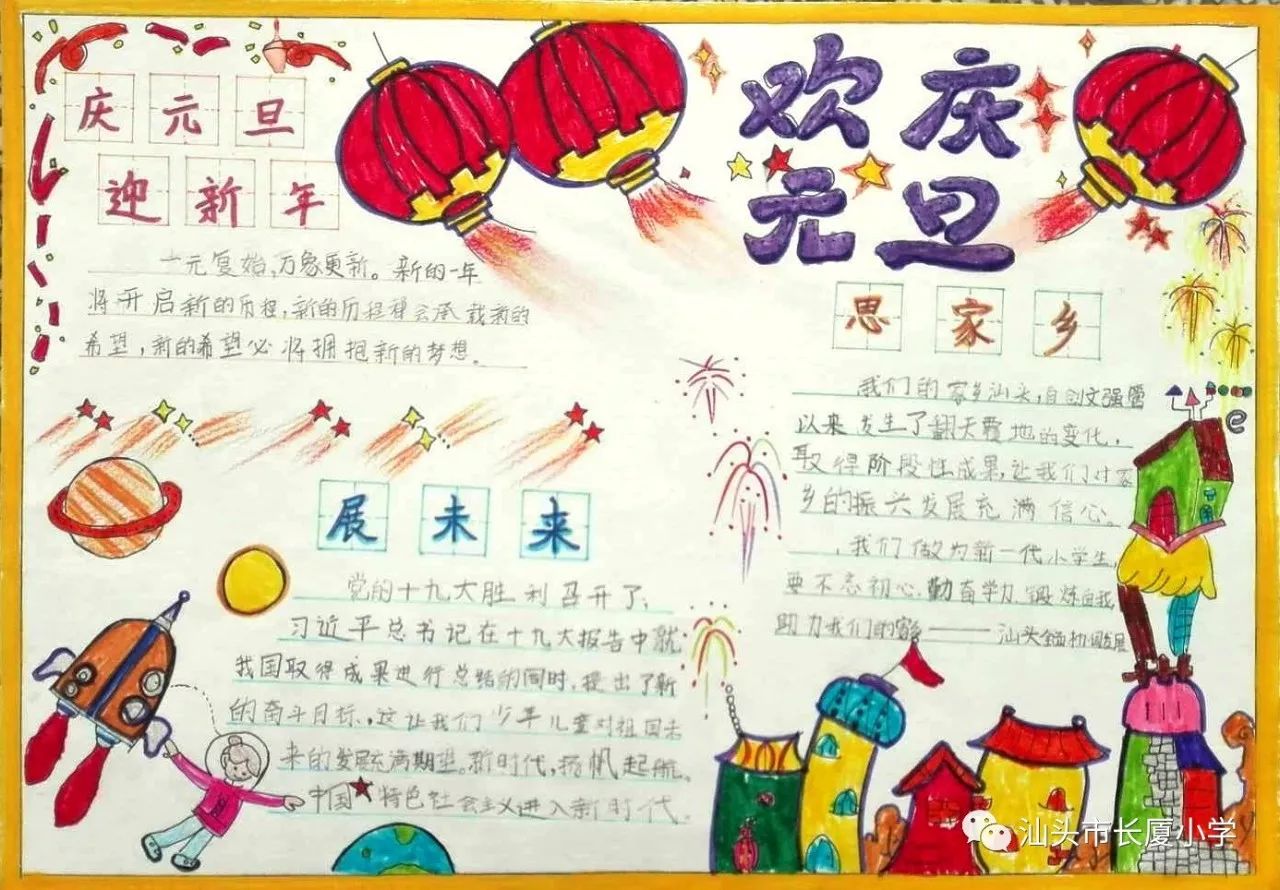 欢庆
元旦
庆元旦
迎新年
一元复始,万象更新。新的一年
将开启新的历程,新的历程将会承载新的
希望,新的希望必将拥抱新的梦想。
展未来
党的十九大胜利召开了,
习近平总书记在十九大报告中就
我国取得成果进行总结的同时,提出了新
的奋斗目标,这让我们少年儿童对祖国未
来的发展充满期望。新时代,扬帆起航。
中国★特色社会主义进入新时代。
思家乡
我们的家乡汕头,自创文强管
以来发生了翻天覆地的变化,
取得阶段性成果,让我们对家
乡的振兴发展充满信心。
我们做为新一代小学生,
要不忘初心,勤奋学力,锻炼自我,
助力我们的家乡——汕头全面协调发展
e
汕头市长厦小学